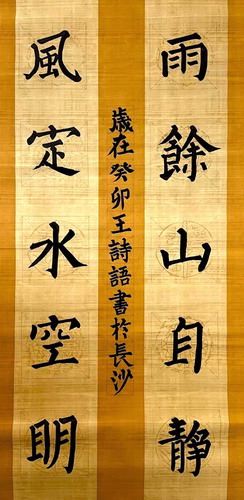 雨餘山自靜
風定水空明
歲在癸卯王詩語書於長沙